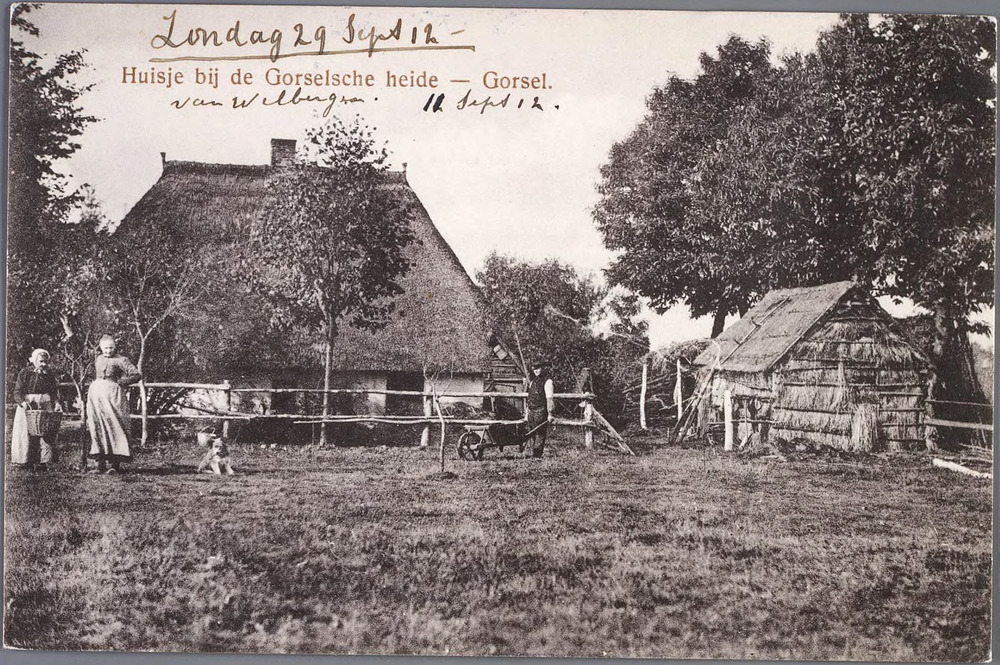 Zondag 29 Sept 12 -
Huisje bij de Gorselsche heide — Gorsel.
van 12 Sept 12.